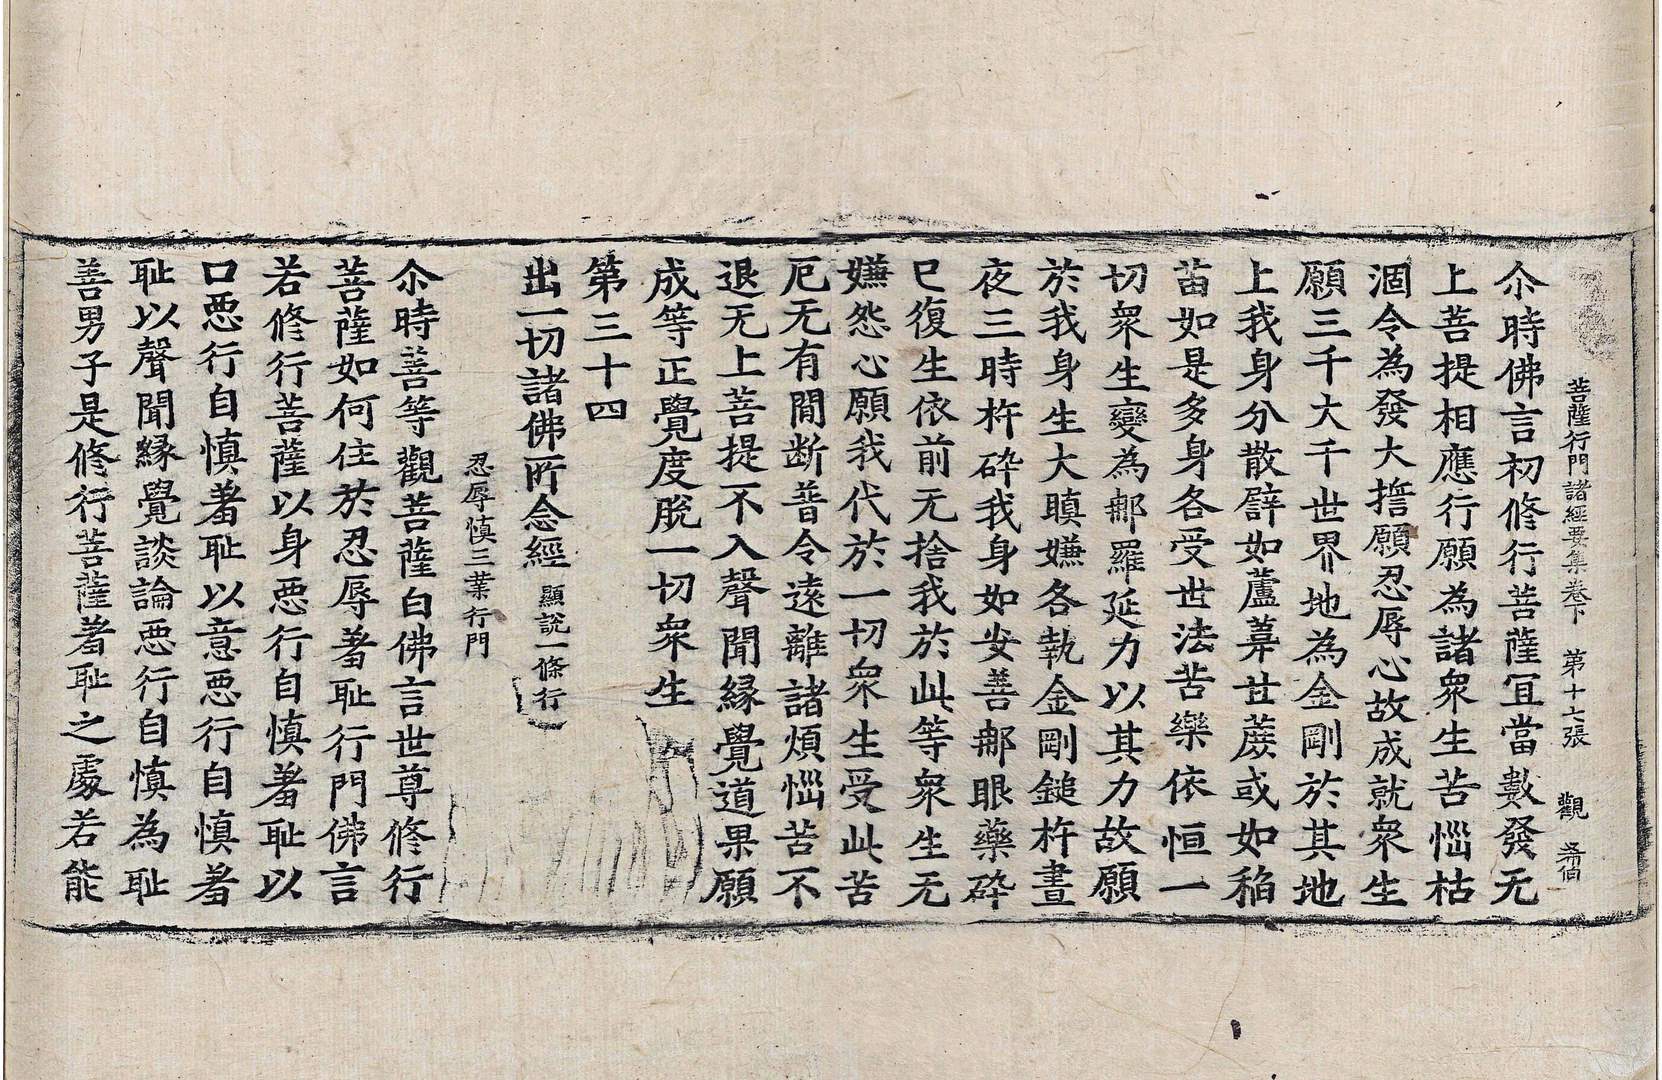 菩薩行門諸經要集卷下　第十七張　觀
尒時佛言初修行菩薩冝當數發无
上菩提相應行願為諸衆生苦惱枯
涸令為發大誓願忍辱心故成就衆生
願三千大千世界地為金剛於其地
上我身分散譬如蘆葦甘蔗或如稻
苗如是多身各受世法苦樂依恒一
切衆生變為那羅延力以其力故願
於我身生大瞋嫌各執金剛鎚杵晝
夜三時杵碎我身如安善那眼藥碎
已復生依前无捨我於此等衆生无
嫌怨心願我代於一切衆生受此苦
厄无有閒断普令遠離諸煩惱苦不
退无上菩提不入聲聞縁覺道果願
成等正覺度脫一切衆生
第三十四
出一切諸佛所念經 顯說一條行
忍辱慎三業行門
尒時善等觀菩薩白佛言世尊修行
菩薩如何住於忍辱著耻行門佛言
若修行菩薩以身悪行自慎著耻以
口悪行自慎著耻以意悪行自慎著
耻以聲聞縁覺談論悪行自慎為耻
善男子是修行菩薩著耻之處若能